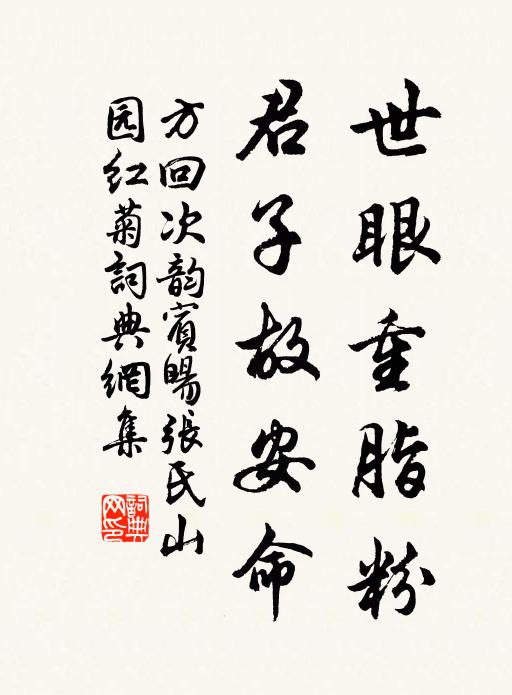 世眼重脂粉
君子故安命
方回次韵賓暘張氏山
园红菊詞典網集
詞典
网印